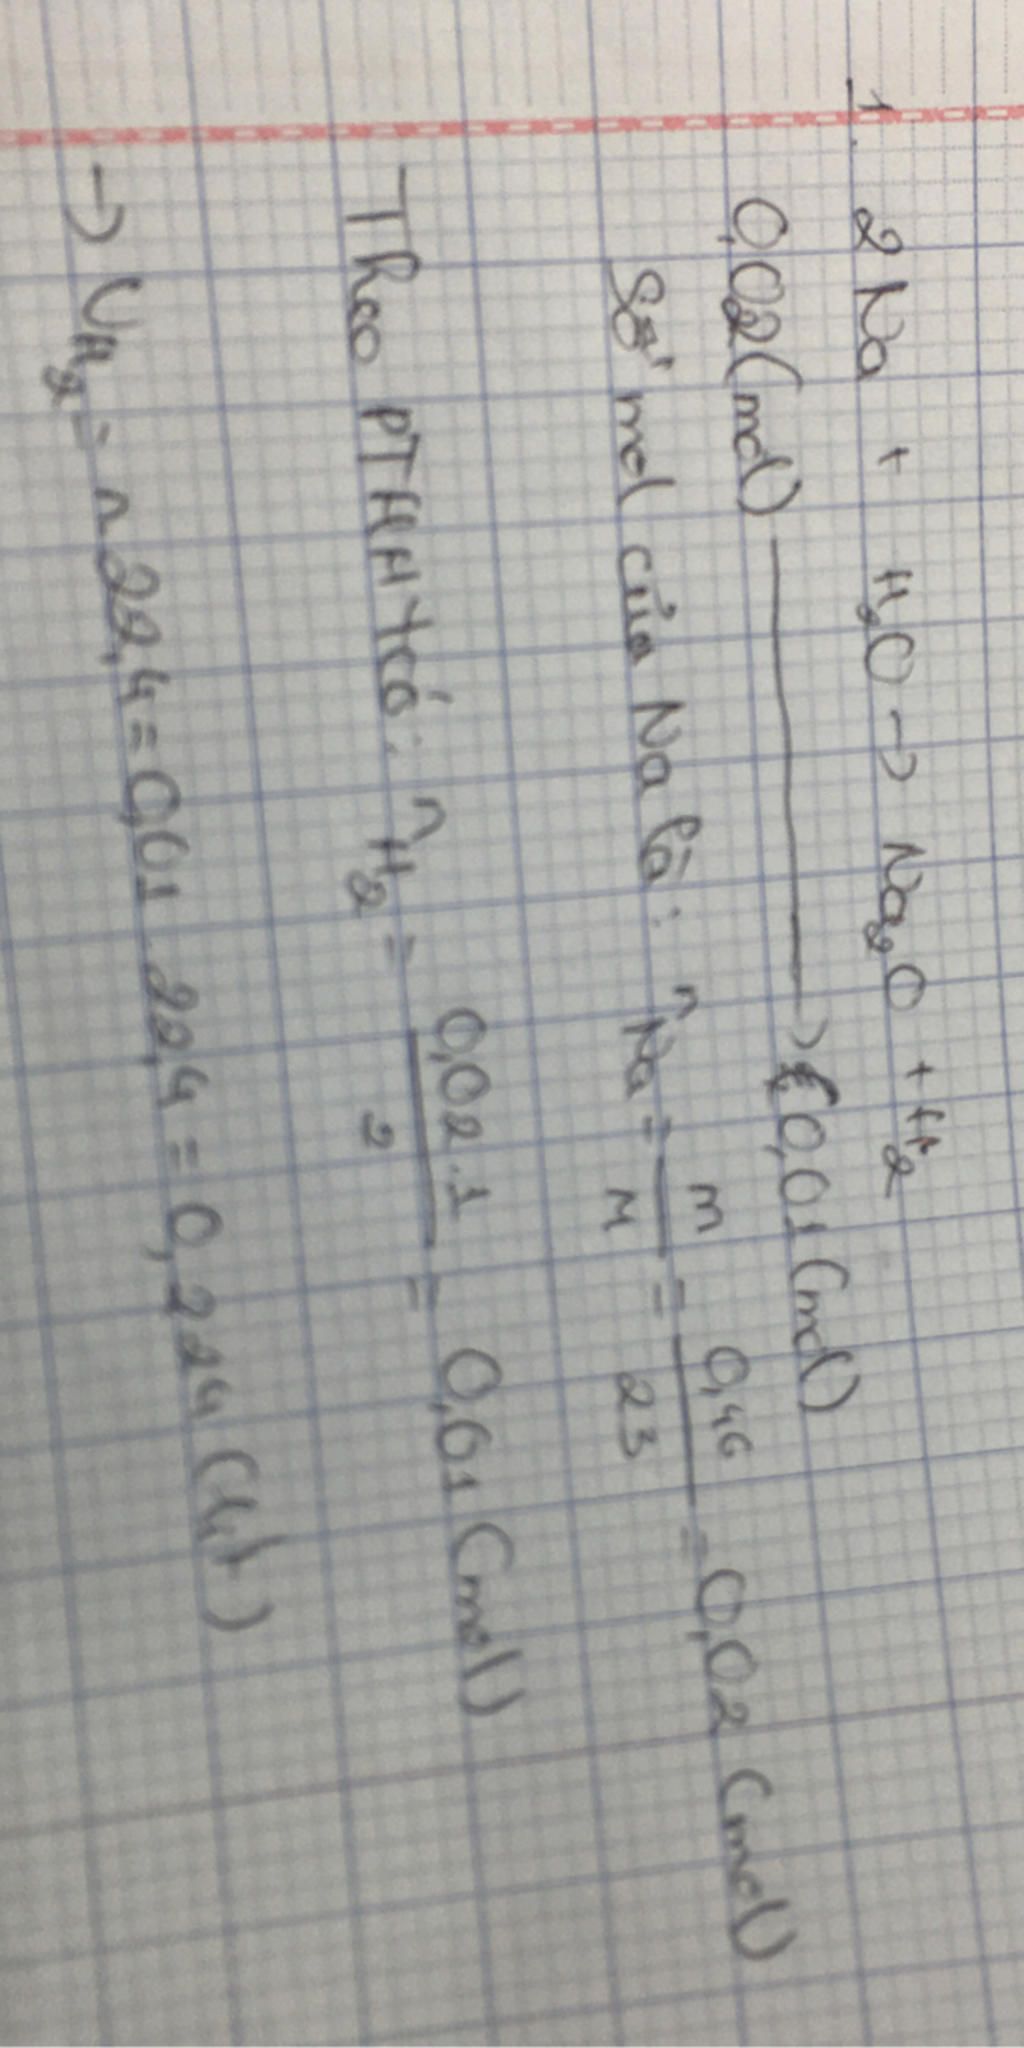 1. 2Na + H₂O → Na₂O + H₂
0,02(mol) → 0,01(mol)
Số mol của Na là: nNa = m/M = 0,46/23 = 0,02 (mol)
- Theo PTHH tcó: nH₂ = 0,02.1/2 = 0,01 (mol)
→ VH₂ = n22,4 = 0,01.22,4 = 0,224 (lít)